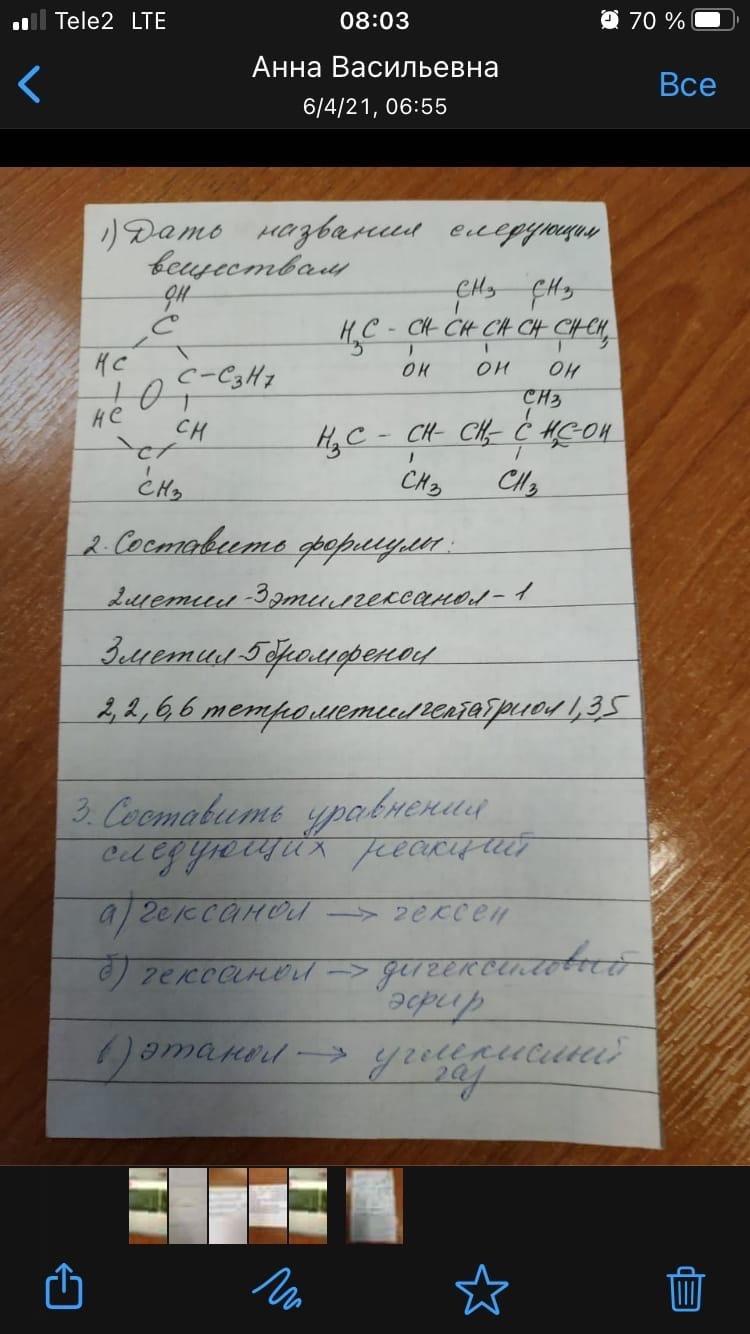 Tele2 LTE 08:03 70 %
Анна Васильевна
6/4/21, 06:55
Все
1) Дать названия следующим
веществам
OH
C
HC
C-C3H7
HC
O
CH
C
CH3
CH3 CH3
H3C - CH- CH CH CH CH CH3
OH OH OH
CH3
H3C - CH- CH2- C H2C-OH
CH3 CH3
2. Составить формулы:
2метил-3этилгексанол-1
3метил-5бромфенол
2,2,6,6 тетрометилгептатриол 1,3,5
3. Составить уравнения
следующих реакций
а) гексанол → гексен
б) гексанол → дигексиловый
эфир
в) этанол → углекислый
газ